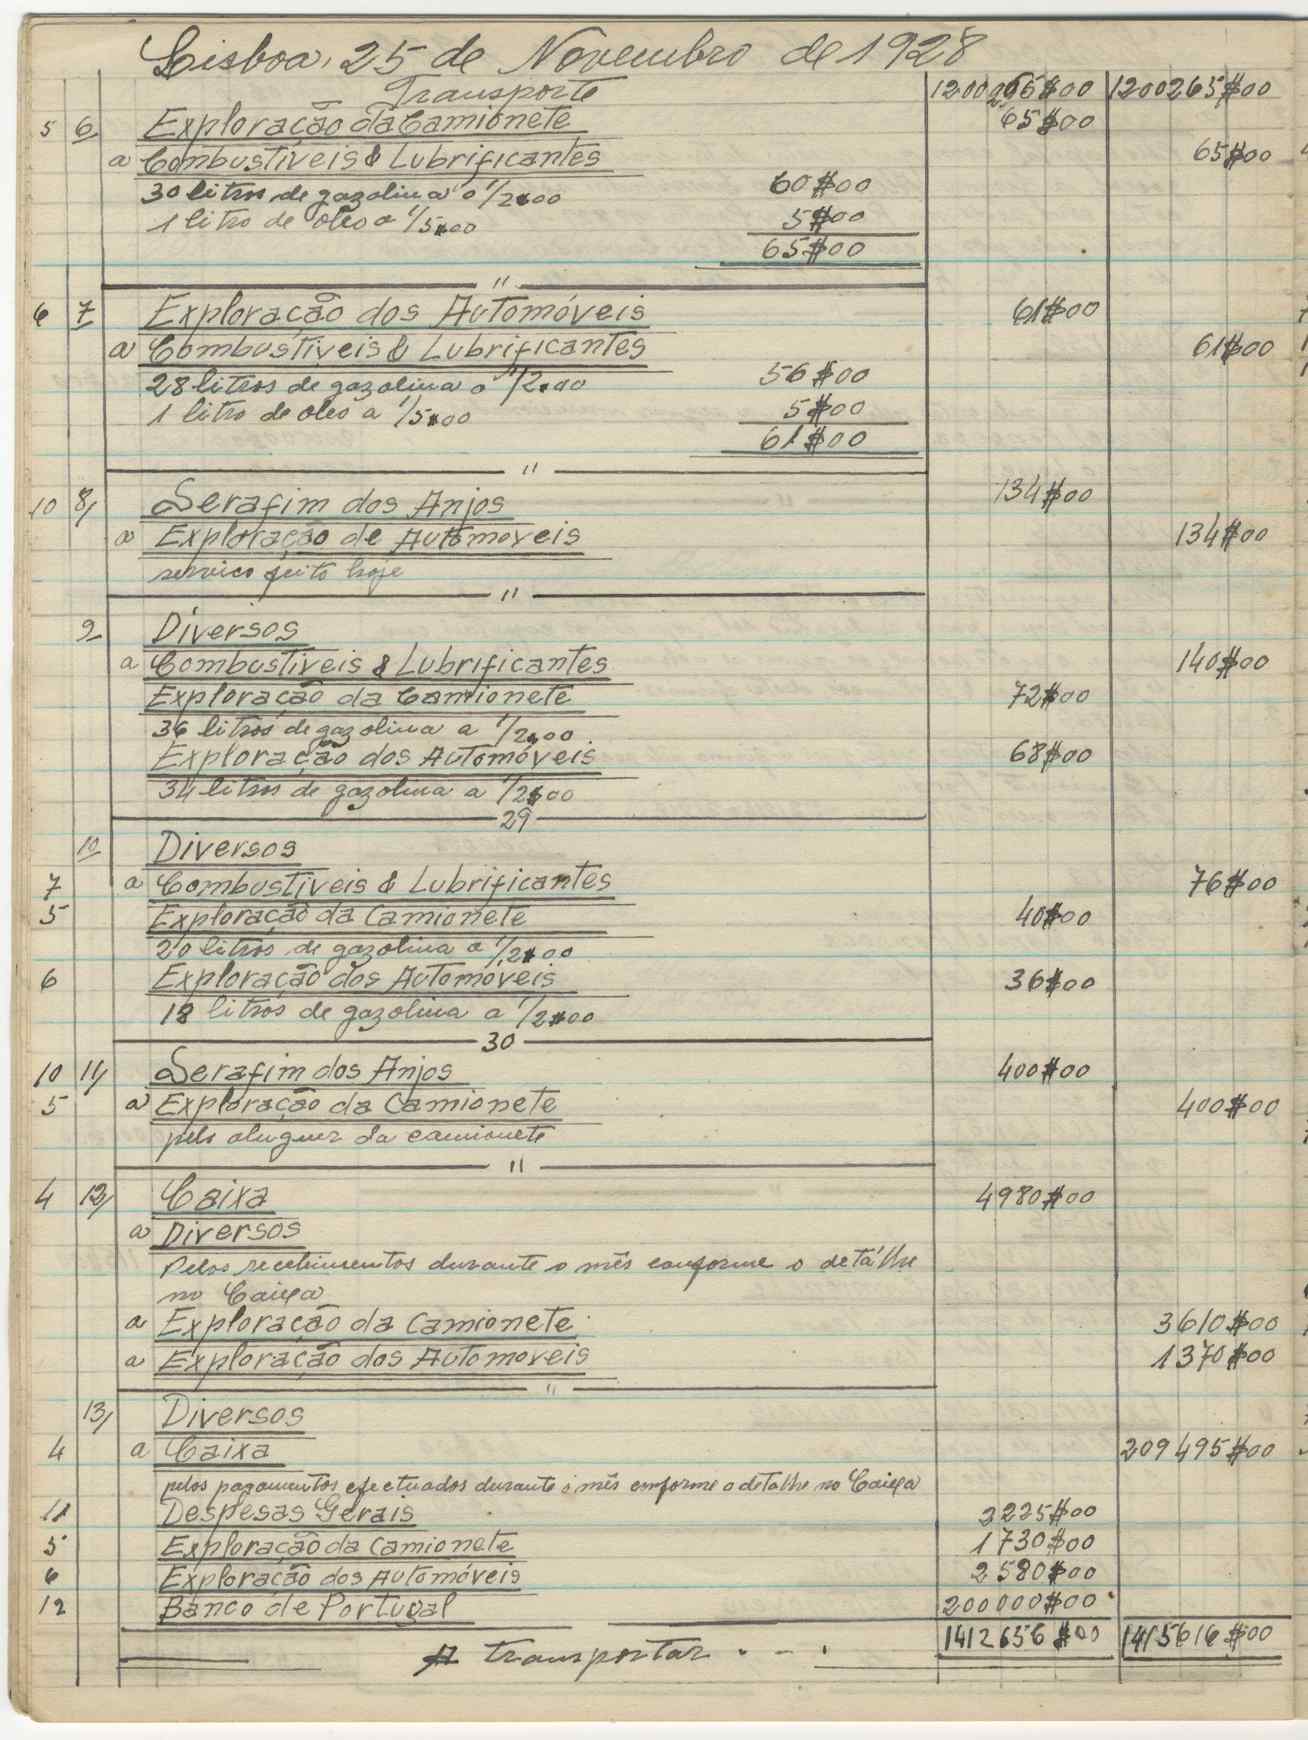 Lisboa, 25 de Novembro de 1928
Transporte 1200265$00 1200265$00
5 6 Exploração da Camionete 65$00
a Combustiveis & Lubrificantes 65$00
30 litros de gazolina a 1/2$00 60$00
1 litro de oleo a 1/5$00 5$00
65$00
"
6 7 Exploração dos Automóveis 61$00
a Combustiveis & Lubrificantes 61$00
28 litros de gazolina a 1/2$00 56$00
1 litro de oleo a 1/5$00 5$00
61$00
"
10 8/ Serafim dos Anjos 134$00
a Exploração de Automoveis 134$00
serviço feito hoje
"
9 Diversos
a Combustiveis & Lubrificantes 140$00
Exploração da Camionete 72$00
36 litros de gazolina a 1/2$00
Exploração dos Automóveis 68$00
34 litros de gazolina a 1/2$00
29
10 Diversos
7 a Combustiveis & Lubrificantes 76$00
5 Exploração da Camionete 40$00
20 litros de gazolina a 1/2$00
6 Exploração dos Automóveis 36$00
18 litros de gazolina a 1/2$00
30
10 11/ Serafim dos Anjos 400$00
5 a Exploração da Camionete 400$00
pelo aluguer da camionete
"
4 12/ Caixa 4980$00
a Diversos
Pelos recebimentos durante o mês conforme o detálhe
no Caixa
a Exploração da Camionete 3610$00
a Exploração dos Automoveis 1370$00
"
13/ Diversos
4 a Caixa 209495$00
pelos pagamentos efectuados durante o mês conforme o detalhe no Caixa
11 Despesas Gerais 2225$00
5 Exploração da Camionete 1730$00
6 Exploração dos Automóveis 2580$00
12 Banco de Portugal 200000$00
A transportar . - - . 1412656$00 1415616$00